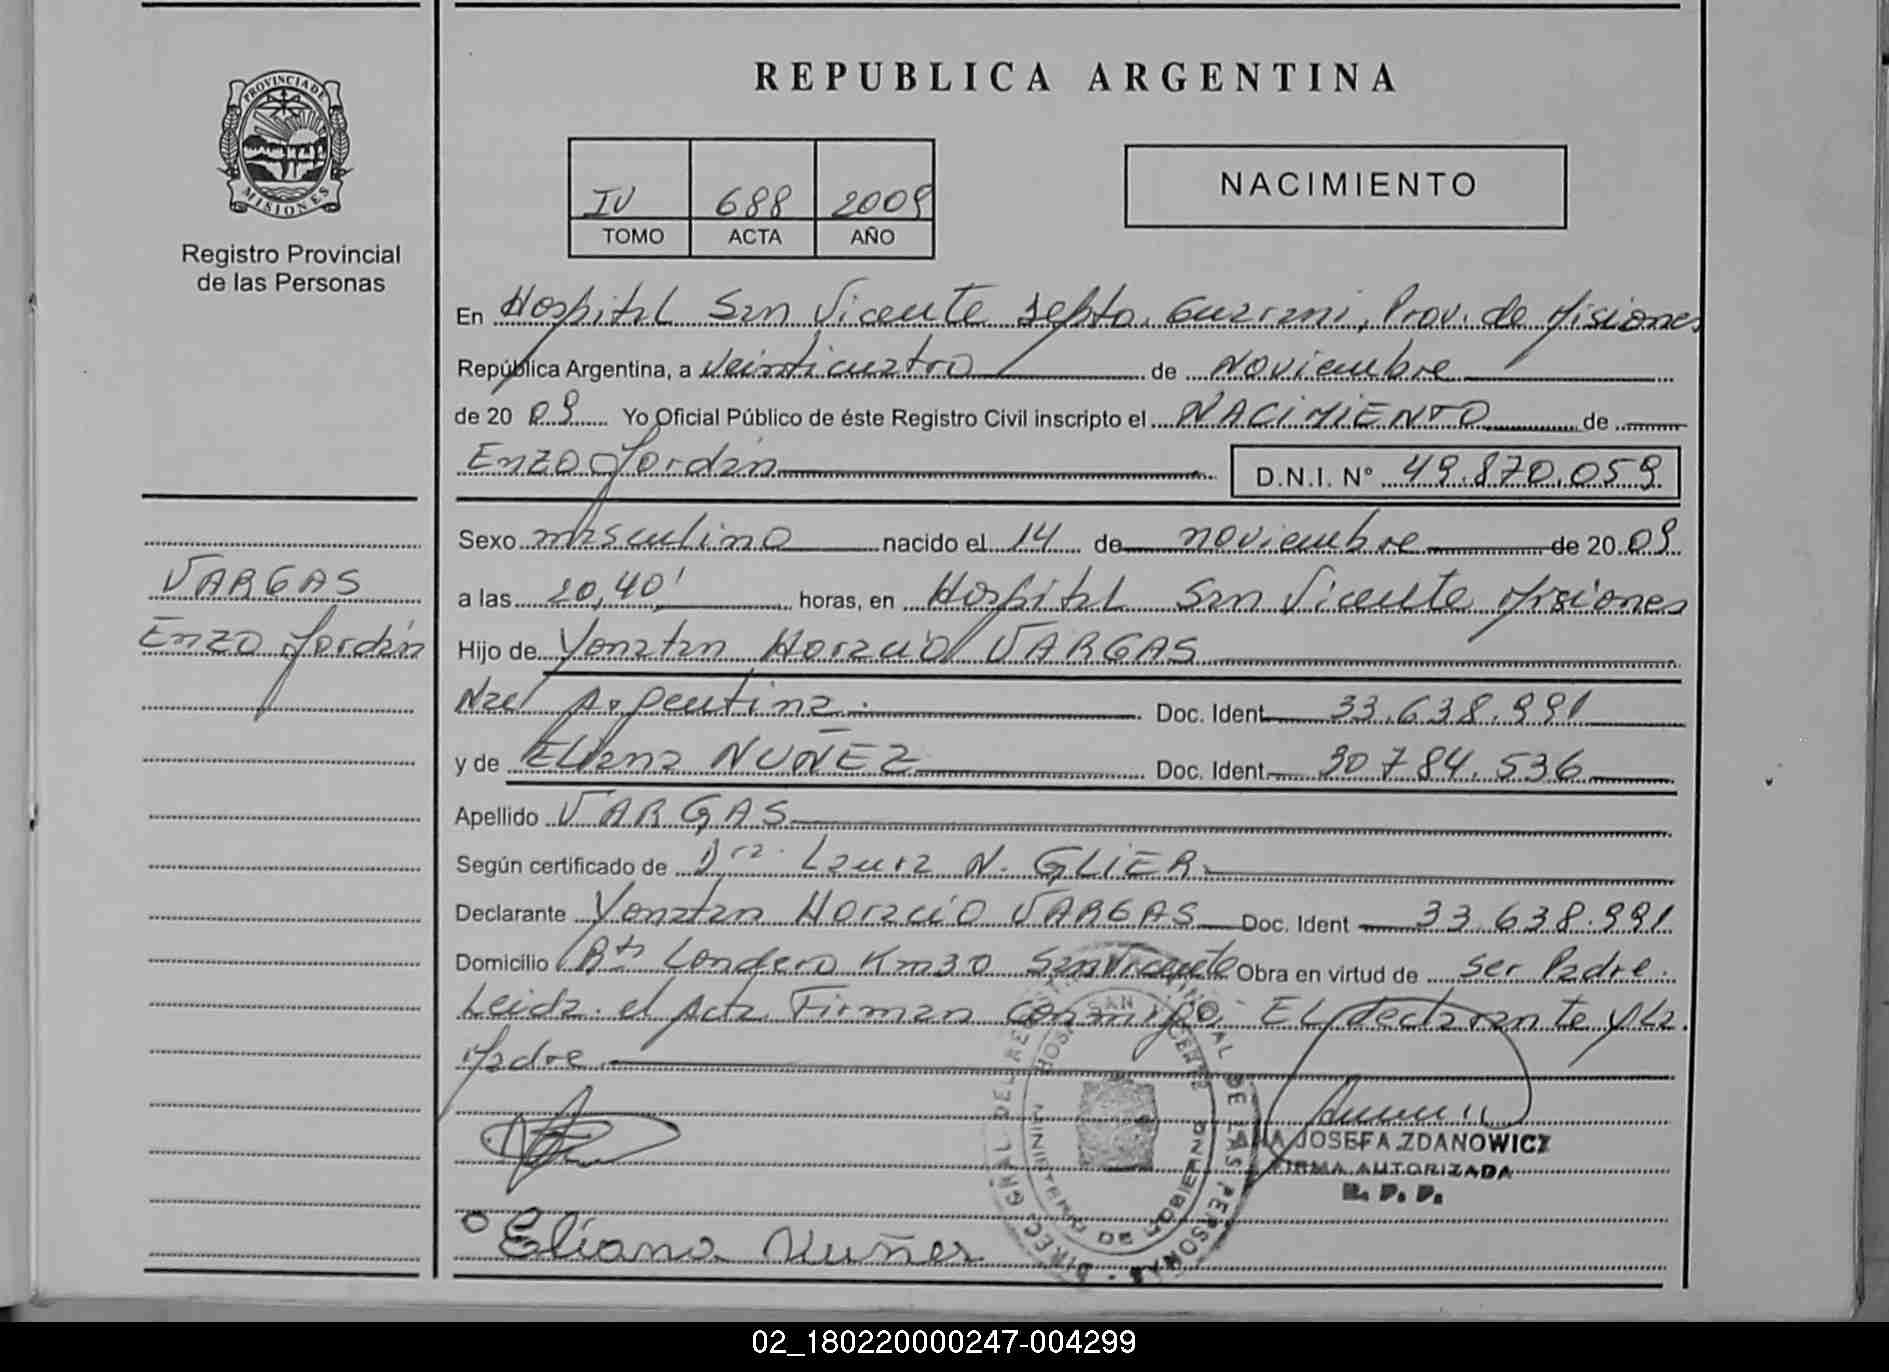 REPUBLICA ARGENTINA
PROVINCIA DE
MISIONES
Registro Provincial
de las Personas
IV 688 2009
TOMO ACTA AÑO
NACIMIENTO
En Hospital San Vicente Depto. Guarani, Prov. de Misiones
República Argentina, a Veinticuatro de Noviembre
de 20 09 Yo Oficial Público de éste Registro Civil inscripto el NACIMIENTO de
Enzo Jordán
D.N.I. N° 49.870.059
Sexo masculino nacido el 14 de noviembre de 20 09
a las 20,40' horas, en Hospital San Vicente Misiones
Hijo de Yonatan Horacio VARGAS
Nac Argentina. Doc. Ident 33.638.991
y de Eliana NUÑEZ Doc. Ident 30.784.536
Apellido VARGAS
Según certificado de Dra. Laura N. GLIER
Declarante Yonatan Horacio VARGAS Doc. Ident 33.638.991
Domicilio Londero Km30 San Vicente Obra en virtud de Ser Padre.
Leida el Acta Firman conmigo El declarante y La
Madre
VARGAS
Enzo Jordán
HOSPITAL SAN VICENTE
MINISTERIO DE GOBIERNO
DIREC. GRAL. DEL REG. PROVINCIAL DE LAS PERSONAS
ANA JOSEFA ZDANOWICZ
FIRMA AUTORIZADA
R. P. P.
Eliana Nuñez
02_180220000247-004299